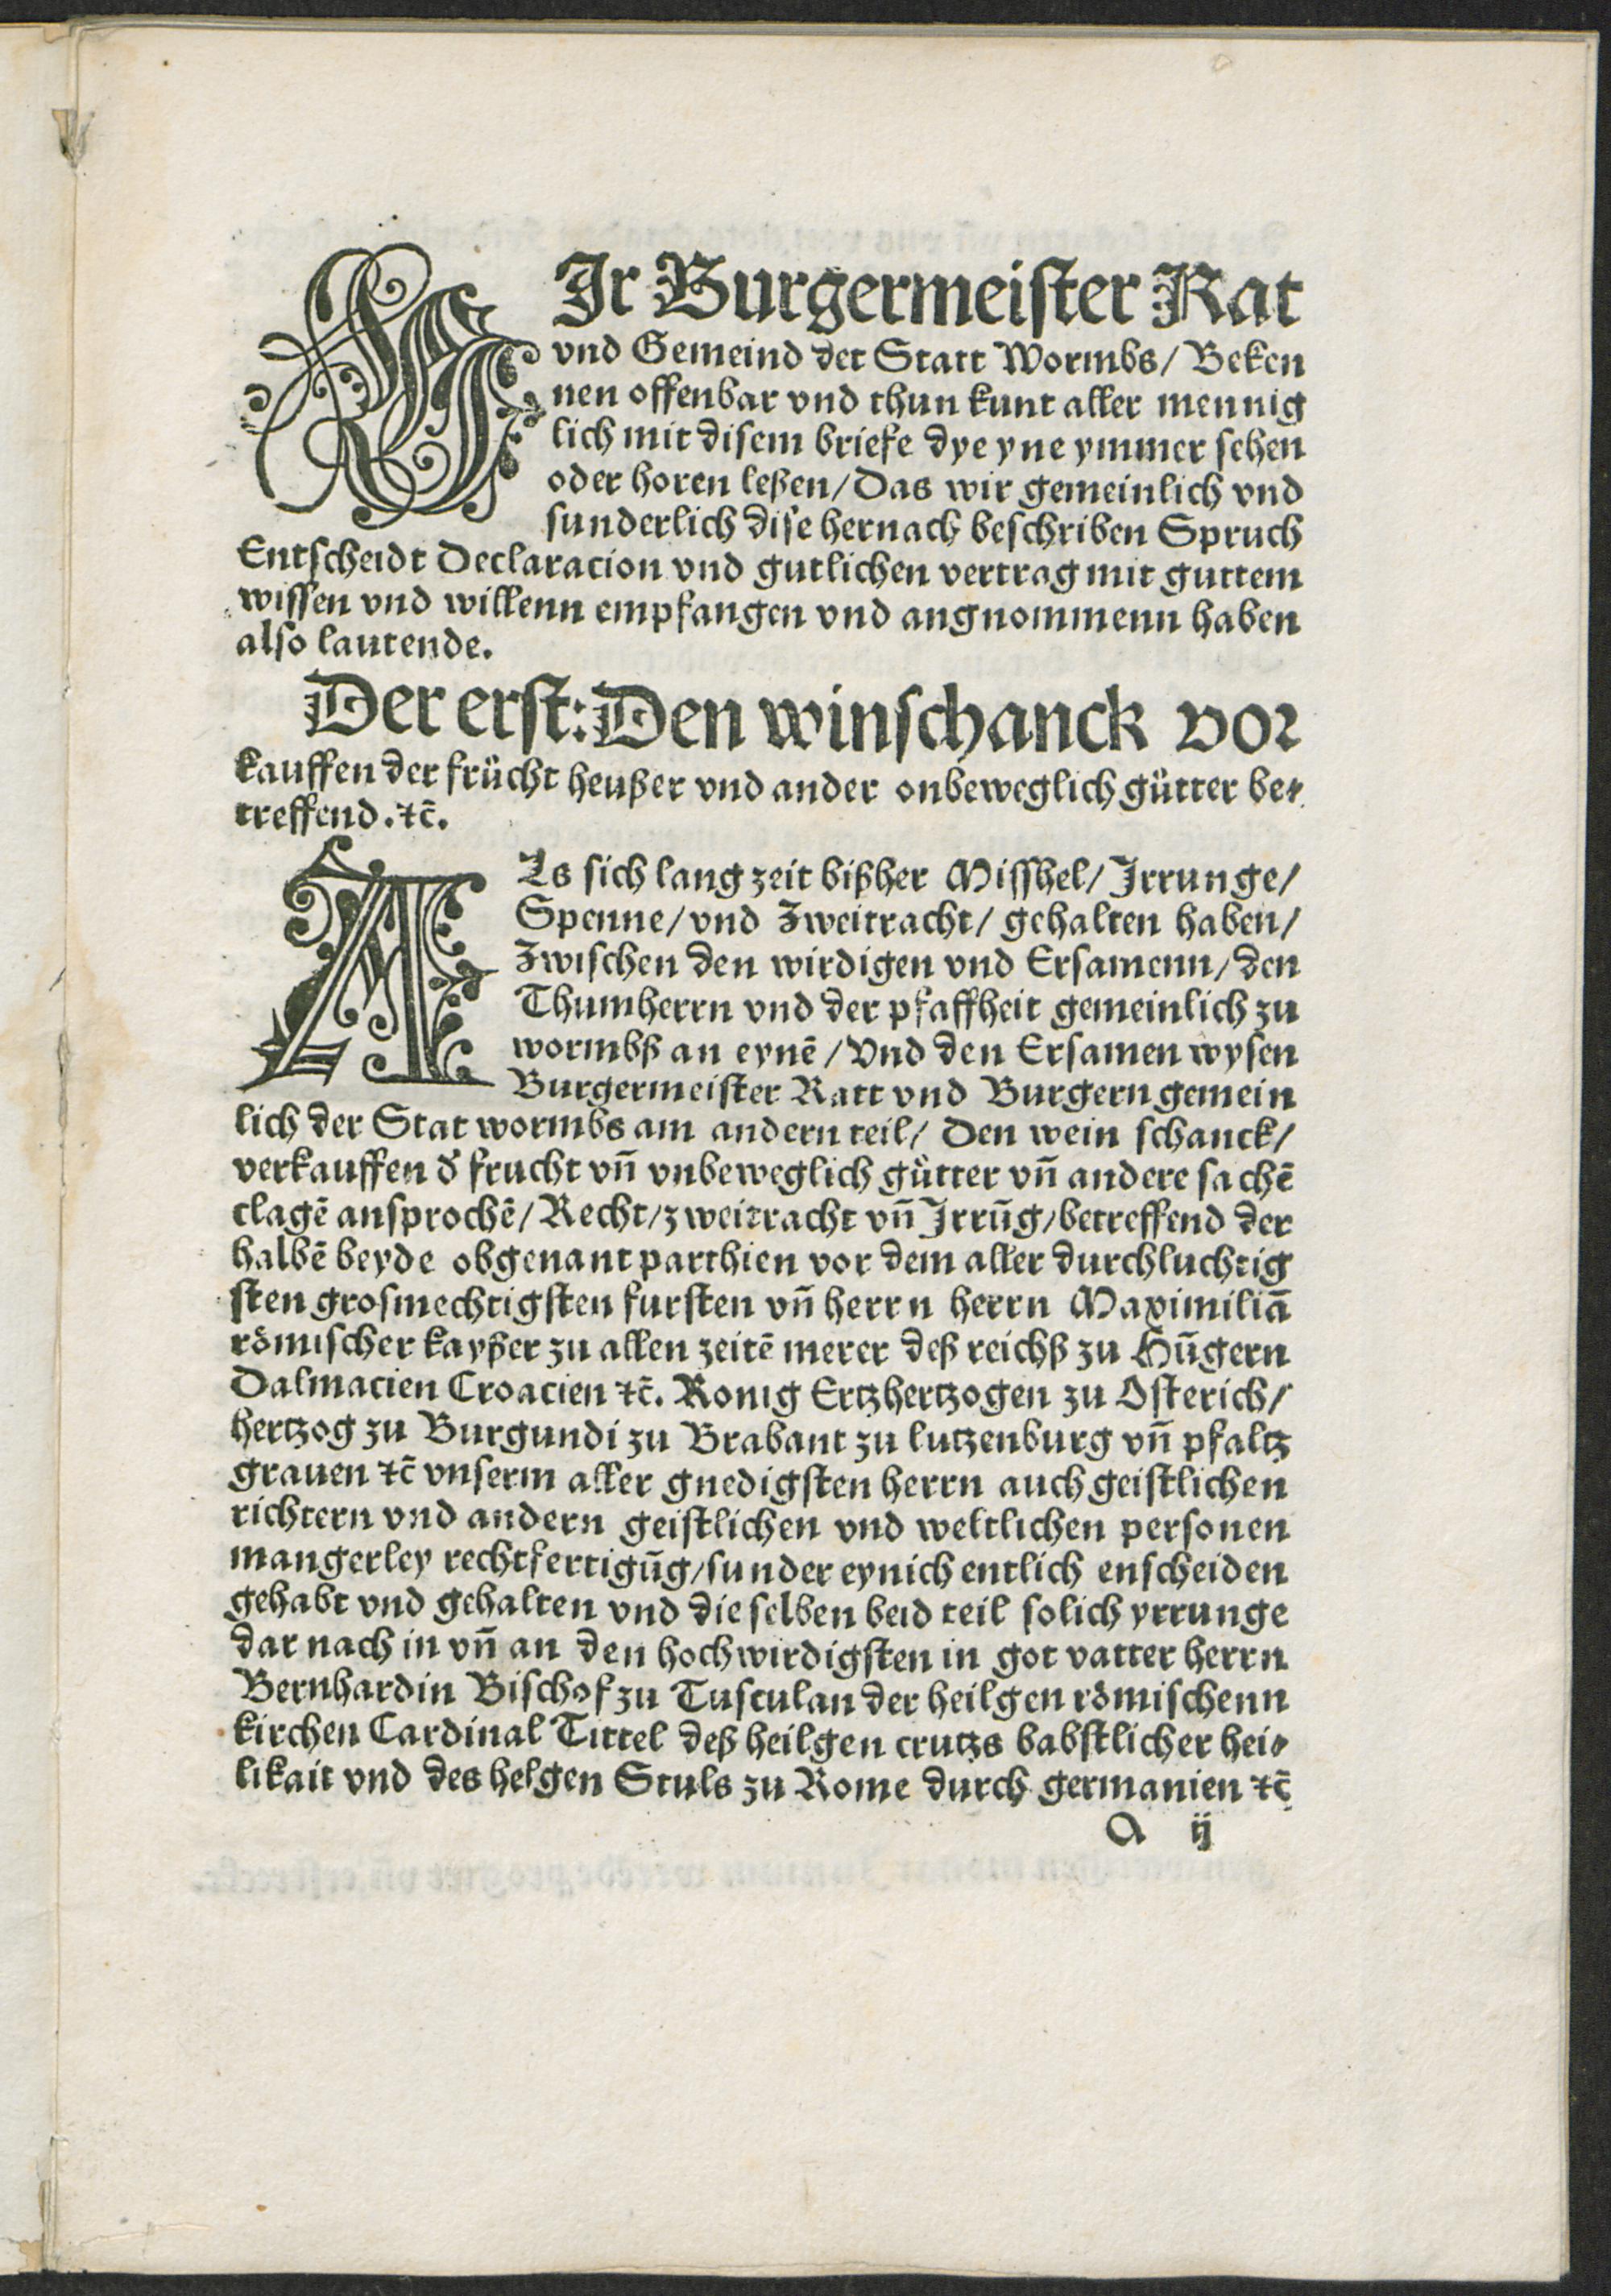 WIr Burgermeister Rat
vnd Gemeind der Statt Wormbs/ Beken
nen offenbar vnd thun kunt aller mennig
lich mit disem briefe dye yne ymmer sehen
oder horen leßen/ Das wir gemeinlich vnd
sunderlich dise hernach beschriben Spruch
Entscheidt Declaracion vnd gutlichen vertrag mit guttem
wissen vnd willenn empfangen vnd angnommenn haben
also lautende.
Der erst: Den winschanck vor
kauffen der frücht heußer vnd ander onbeweglich gütter be⸗
treffend. ⁊c̄.
ALs sich lang zeit bißher Misshel/ Irrunge/
Spenne/ vnd Zweitracht/ gehalten haben/
Zwischen den wirdigen vnd Ersamenn/ den
Thumherrn vnd der pfaffheit gemeinlich zu
wormbß an eynē/ Vnd den Ersamen wysen
Burgermeister Ratt vnd Burgern gemein
lich der Stat wormbs am andern teil/ Den wein schanck/
verkauffen d̓ frucht vn̄ vnbeweglich gütter vn̄ andere sachē
clagē ansprochē/ Recht/ zweitracht vn̄ Irrūg/ betreffend der
halbē beyde obgenant parthien vor dem aller durchluchtig
sten grosmechtigsten fursten vn̄ herrn herrn Maximiliā
römischer kayßer zu allen zeitē merer deß reichß zu Hūgern
Dalmacien Croacien ⁊c̄. Konig Ertzhertzogen zu Osterich/
hertzog zu Burgundi zu Brabant zu lutzenburg vn̄ pfaltz
grauen ⁊c̄ vnserm aller gnedigsten herrn auch geistlichen
richtern vnd andern geistlichen vnd weltlichen personen
mangerley rechtfertigūg/ sunder eynich entlich enscheiden
gehabt vnd gehalten vnd die selben beid teil solich yrrunge
dar nach in vn̄ an den hochwirdigsten in got vatter herrn
Bernhardin Bischof zu Tusculan der heilgen römischenn
kirchen Cardinal Tittel deß heilgen crutzs babstlicher hei⸗
likait vnd des helgen Stuls zu Rome durch germanien ⁊c̄
A ij